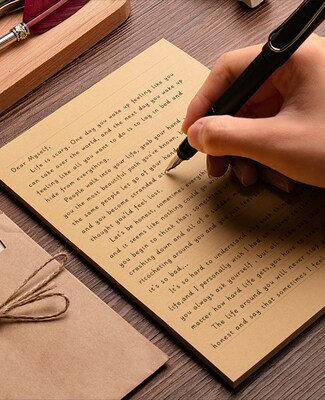 Dear Myself,
Life is scary. One day you wake up feeling like you
can take over the world, and the next day you wake up
feeling like all you want to do is to lay in bed and
hide from everything.
People walk into your life, grab your hand
you the most beautiful path you've known,
the same people let go of your hand
and you become stranded
thought you'd feel lost,
Let's be honest, sometimes everything
and it seems like nothing could go
you begin to think that, someway
crashing down and all of
ricocheting around you and
it's so bad.
It's so hard to understand
life, and I personally wish I had
you always ask yourself,
matter how hard life gets, you have
The life around you will never
honest and say that sometimes I feel